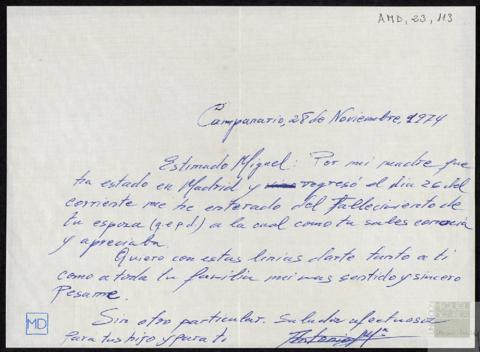 AMD, 23, 113
Campanario, 28 de Noviembre, 1974
Estimado Miguel: Por mi madre que
ha estado en Madrid y regresó el dia 26 del
corriente me he enterado del fallecimiento de
tu esposa (q.e.p.d) a la cual como tu sabes conocia
y apreciaba.
Quiero con estas linias darte tanto a ti
como a toda tu familia mi mas sentido y sincero
Pesame.
Sin otro particular. Saludos afectuosos
para tus hijo y para ti
Antonio Mª
MD